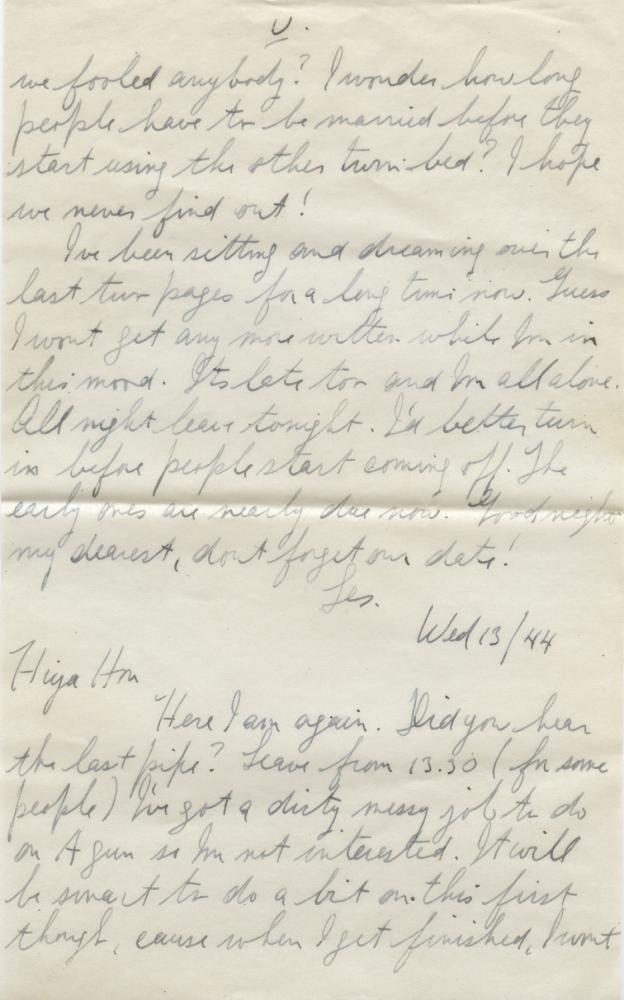 U.
we fooled anybody? I wonder how long
people have to be married before they
start using the other twin-bed? I hope
we never find out!
Ive been sitting and dreaming over the
last two pages for a long time now. Guess
I wont get any more written while Im in
this mood. Its late too and Im all alone.
All night leave tonight. I'd better turn
in before people start coming off. The
early ones are nearly due now. Goodnight
my dearest, dont forget our date!
Les.
Wed 13/44
Hiya Hon
Here I am again. Did you hear
the last pipe? Leave from 13.30 (for some
people) I've got a dirty messy job to do
on A gun so Im not interested. It will
be smart to do a bit on this first
though, cause when I get finished, I wont